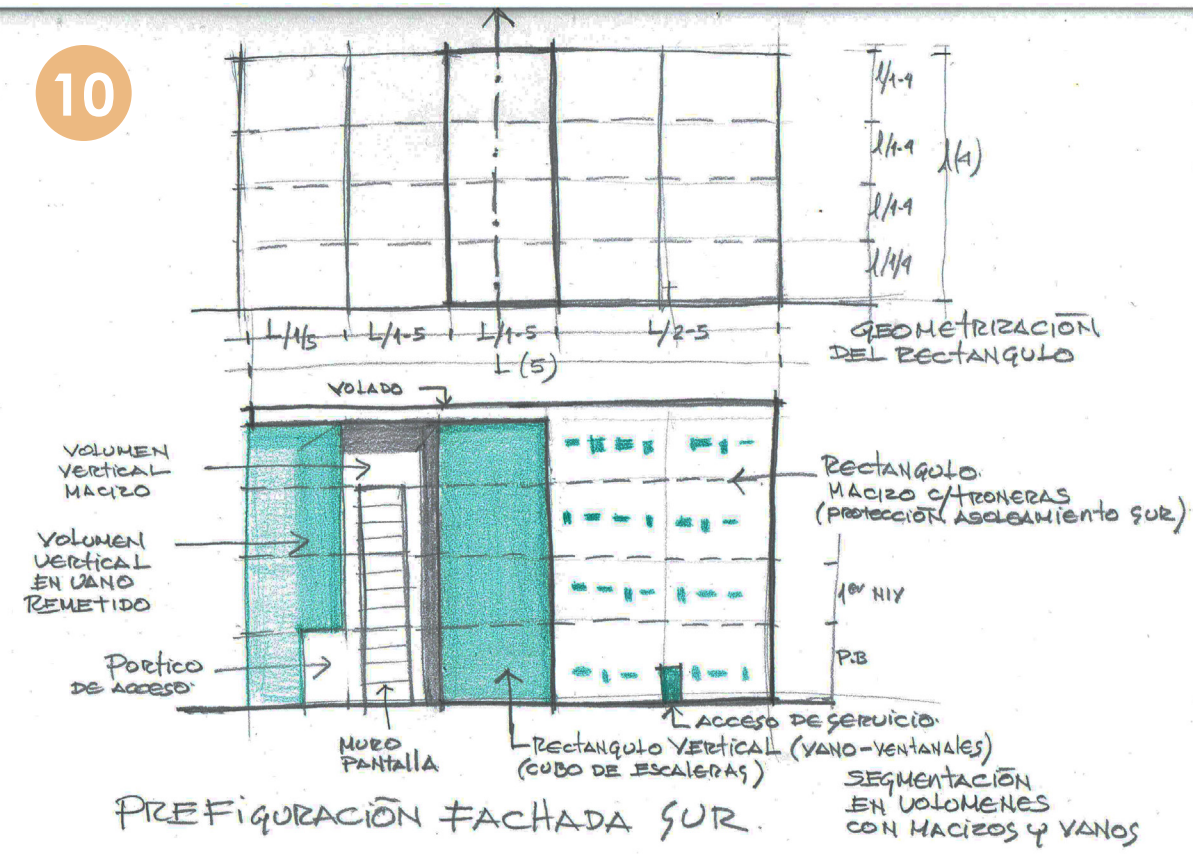 10
l/1-4
l/1-4
l(4)
l/1-4
l/1/4
L/1/5
L/1-5
L/1-5
L/2-5
L(5)
GEOMETRIZACIÓN
DEL RECTANGULO
VOLADO
VOLUMEN
VERTICAL
MACIZO
VOLUMEN
VERTICAL
EN VANO
REMETIDO
PORTICO
DE ACCESO.
MURO
PANTALLA
RECTANGULO
MACIZO C/TRONERAS
(PROTECCIÓN ASOLEAMIENTO SUR)
1er NIV
P.B
ACCESO DE SERVICIO.
RECTANGULO VERTICAL (VANO-VENTANALES)
(CUBO DE ESCALERAS)
SEGMENTACIÓN
EN VOLUMENES
CON MACIZOS Y VANOS
PREFIGURACIÓN FACHADA SUR.